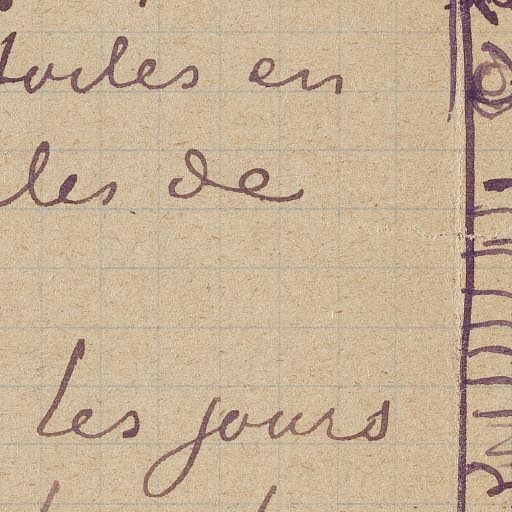 toiles en
les de
les jours